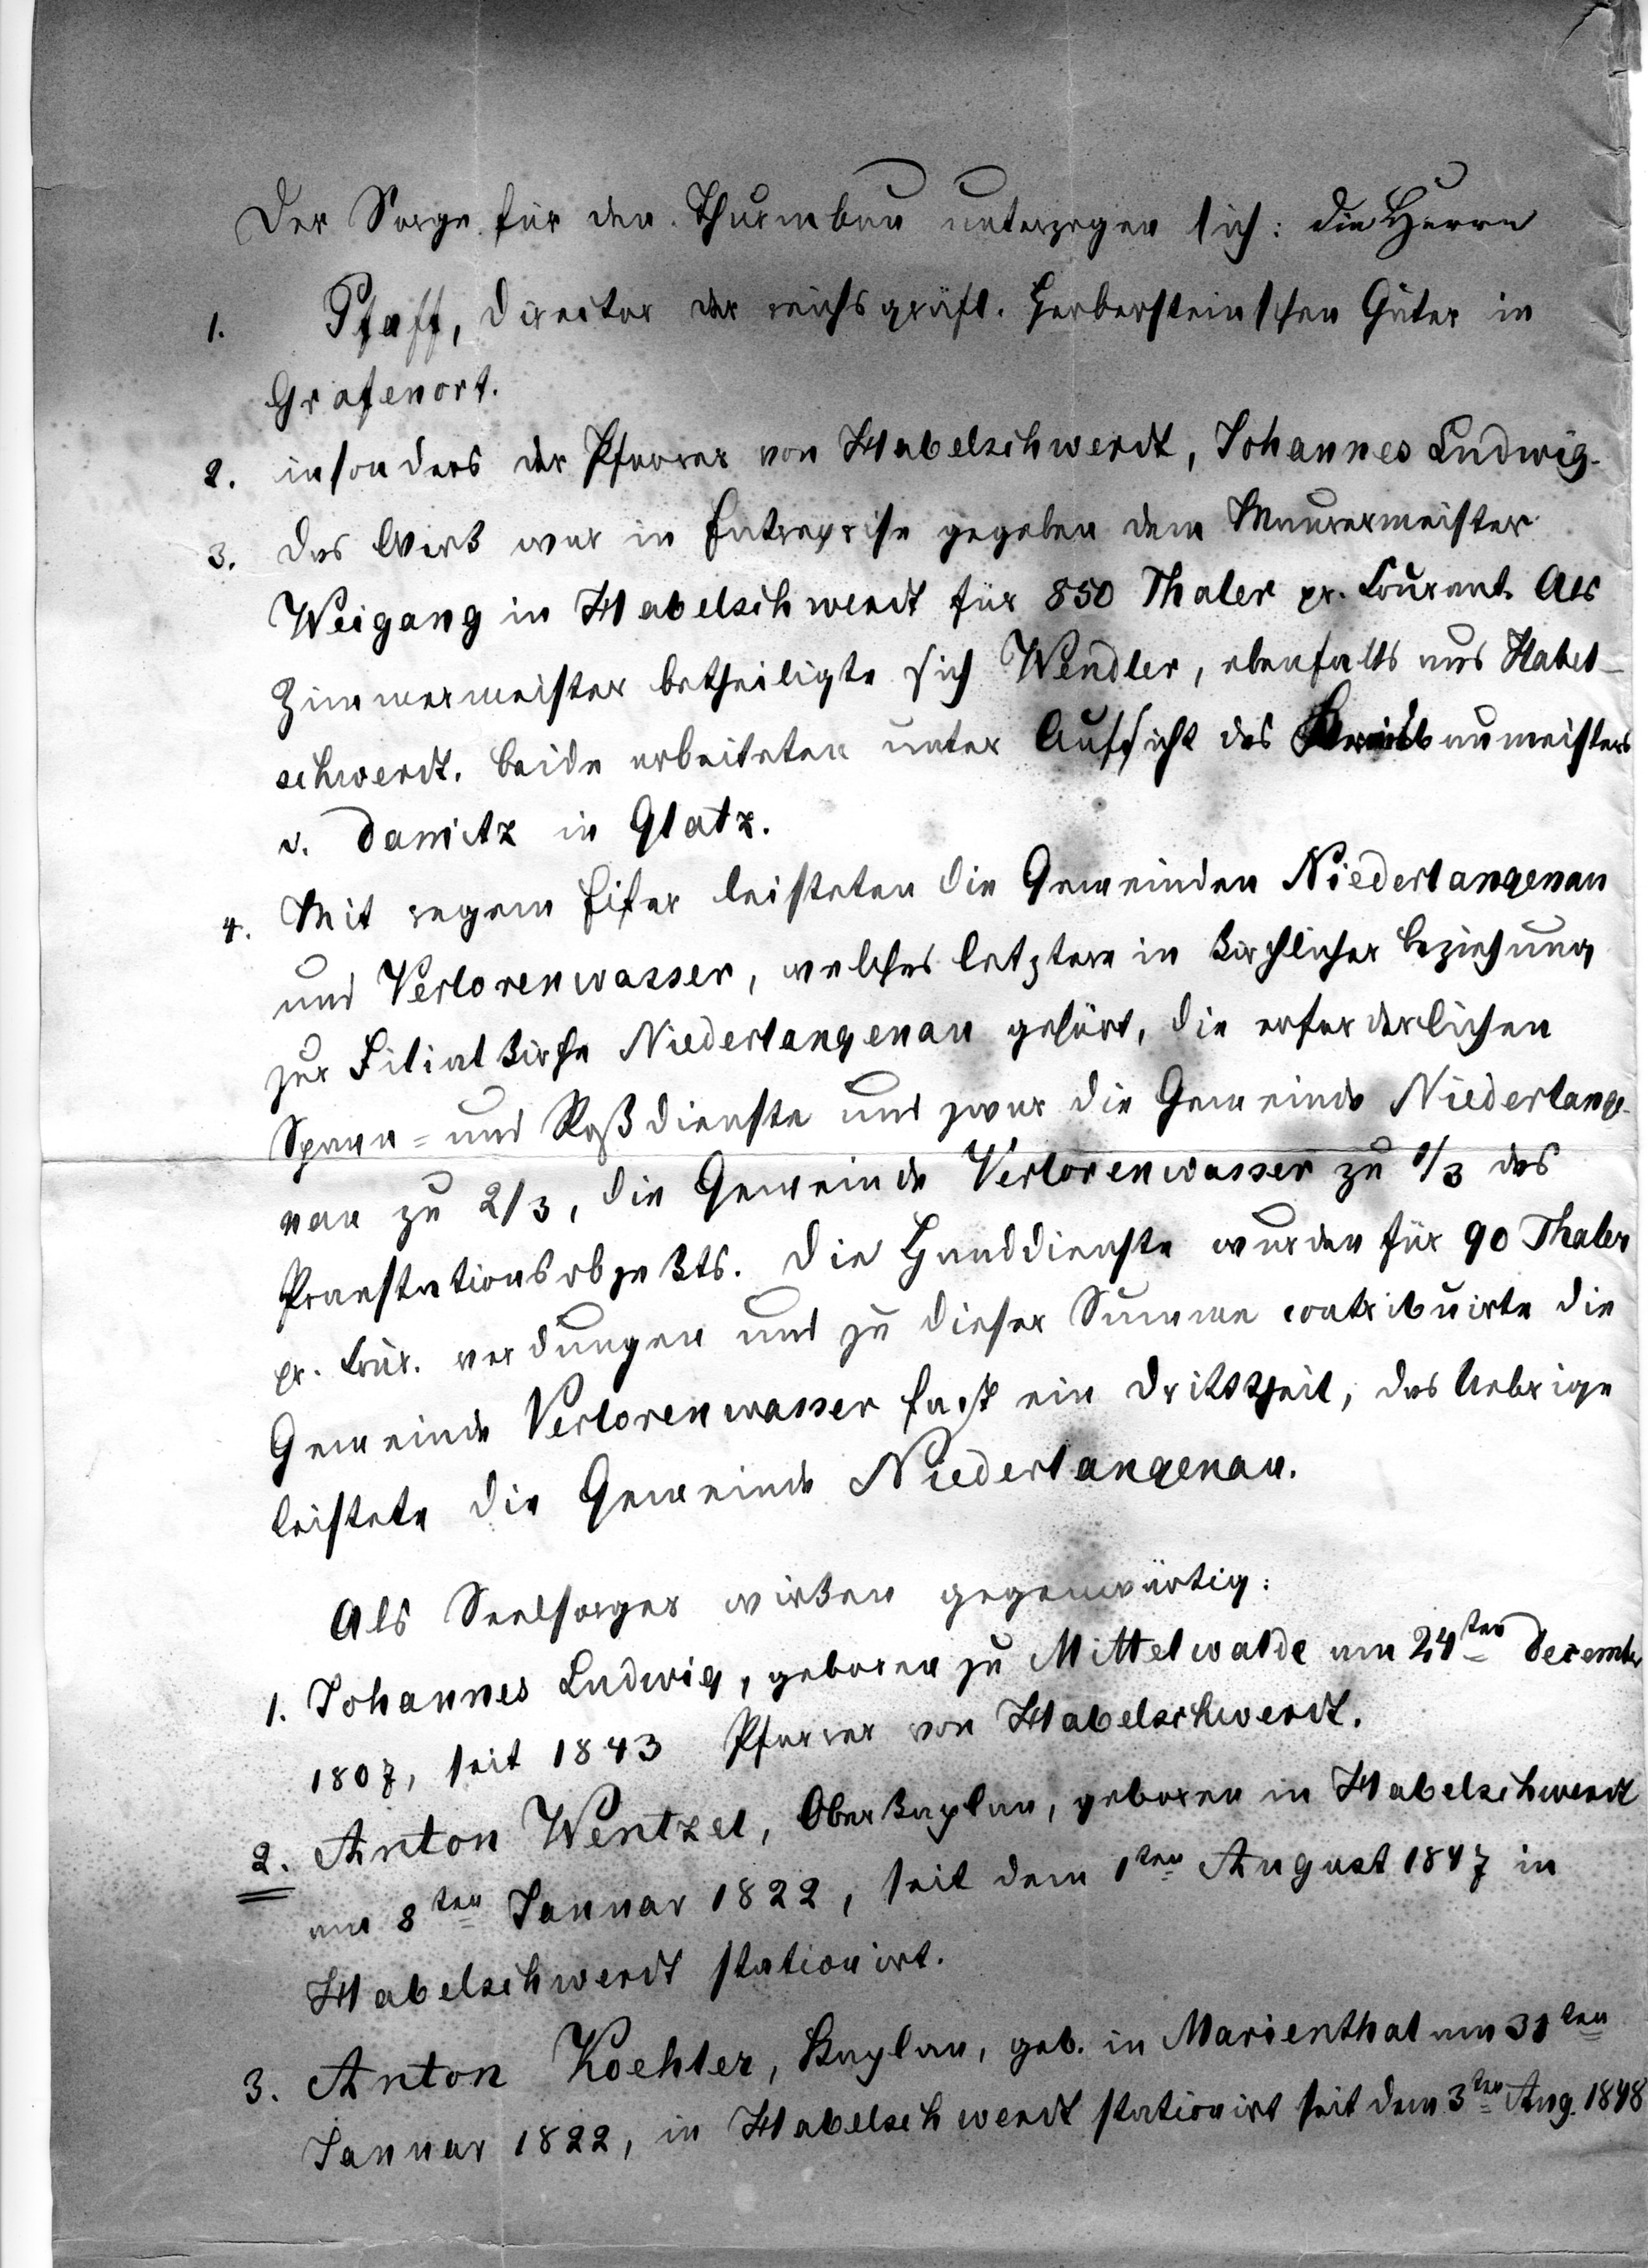 Der Sorge für den Thurmbau unterzogen sich: die Herrn
1. Pfaff, Director der reichsgräfl. Herberstein'schen Güter in
Grafenort.
2. insonders der Pfarrer von Habelschwerdt, Johannes Ludwig.
3. Das Werk war in Entreprise gegeben dem Maurermeister
Weigang in Habelschwerdt für 850 Thaler pr. Courant. Als
Zimmermeister betheiligte sich Wendler, ebenfalls aus Habel-
schwerdt. Beide arbeiteten unter Aufsicht des Kreisbaumeisters
v. Damitz in Glatz.
4. Mit regem Eifer leisteten die Gemeinden Niederlangenau
und Verlorenwasser, welches letztere in kirchlicher Beziehung
zur Filialkirche Niederlangenau gehört, die erforderlichen
Spann- und Roßdienste und zwar die Gemeinde Niederlange-
nau zu 2/3, die Gemeinde Verlorenwasser zu 1/3 des
Praestationsobjekts. Die Handdienste wurden für 90 Thaler
pr. Cour. verdungen und zu dieser Summe contribuirte die
Gemeinde Verlorenwasser fast ein Drittheil, das Uebrige
leistete die Gemeinde Niederlangenau.
Als Seelsorger wirken gegenwärtig:
1. Johannes Ludwig, geboren zu Mittelwalde am 24ten December
1807, seit 1843 Pfarrer von Habelschwerdt.
2. Anton Wentzel, Oberkaplan, geboren in Habelschwerdt
am 8ten Januar 1822, seit dem 1ten August 1847 in
Habelschwerdt stationirt.
3. Anton Koehler, Kaplan, geb. in Marienthal am 31ten
Januar 1822, in Habelschwerdt stationirt seit dem 3ten Aug. 1848